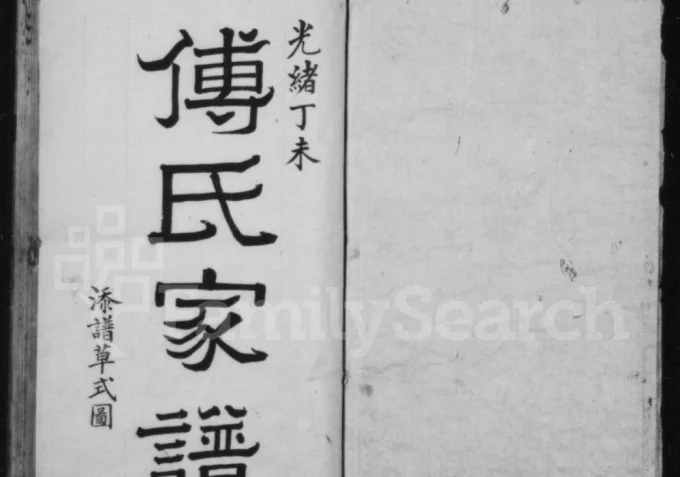 光緒丁未
傅氏家譜
添譜草式圖
FamilySearch